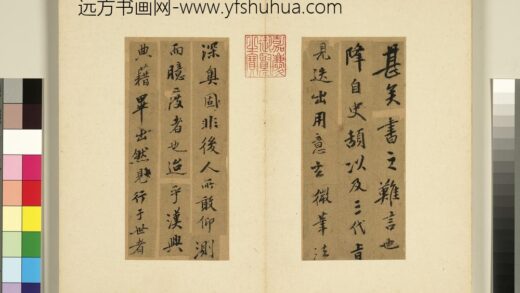 远方书画网-www.yfshuhua.com
甚矣書之難言也
降自史頡以及三代
見迭出用意玄微筆法
深奧固非後人所敢仰測
而臆度者也迨乎漢興
典籍畢出然行于世者
嘉慶御覽之寶